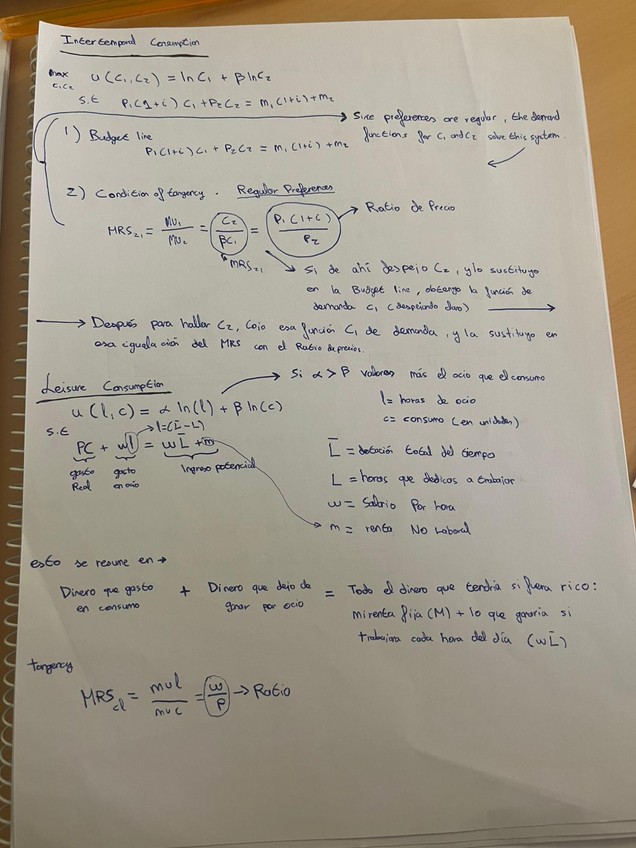 Intertemporal Consumption
max C₁C₂ U(C₁,C₂) = ln C₁ + β ln C₂
s.t P₁(1+i) C₁ + P₂C₂ = m₁(1+i) + m₂
→ Since preferences are regular, the demand
functions for C₁ and C₂ solve this system.
1) Budget line
P₁(1+i) C₁ + P₂C₂ = m₁(1+i) + m₂
2) Condition of tangency. Regular Preferences
MRS₂₁ = MU₁/MU₂ = C₂/βC₁ = P₁(1+i)/P₂ → Ratio de Precio
MRS₂₁
Si de ahí despejo C₂, y lo sustituyo
en la Budget line, obtengo la función de
demanda C₁ (despejando claro) →
→ Después para hallar C₂, cojo esa función C₁ de demanda, y la sustituyo en
esa igualación del MRS con el Ratio de precios.
Leisure Consumption
→ Si α > β valores más el ocio que el consumo
u(l,c) = α ln(l) + β ln(c)
l = horas de ocio
c = consumo (en unidades)
s.t
→ l=(L̄-L)
PC + wl = wL̄ + m
gasto Real
gasto en ocio
Ingreso potencial
L̄ = dotación total del tiempo
L = horas que dedicas a trabajar
w = Salario Por hora
m = renta No Laboral
esto se resume en →
Dinero que gasto en consumo + Dinero que dejo de ganar por ocio = Todo el dinero que tendría si fuera rico:
mi renta fija (M) + lo que ganaría si
trabajara cada hora del día (wL̄)
tangency
MRS cl = mul/muc = w/P → Ratio